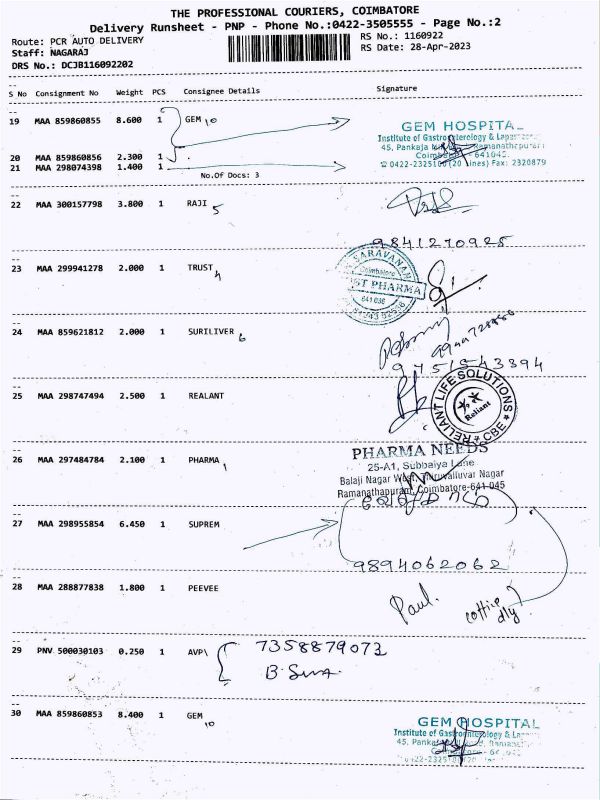 THE PROFESSIONAL COURIERS, COIMBATORE
Delivery Runsheet - PNP - Phone No.:0422-3505555 - Page No.:2
Route: PCR AUTO DELIVERY
Staff: NAGARAJ
DRS No.: DCJB116092202
RS No.: 1160922
RS Date: 28-Apr-2023
S No Consignment No Weight PCS Consignee Details Signature
19 MAA 859860855 8.600 1 GEM 10
20 MAA 859860856 2.300 1
21 MAA 298074398 1.400 1
No.Of Docs: 3
GEM HOSPITAL
Institute of Gastroenterology &
45, Pankaja Ramanathapuram
Coimbatore - 641045.
0422-2325100 (20 Lines) Fax: 2320879
22 MAA 300157798 3.800 1 RAJI 5
9841270925
23 MAA 299941278 2.000 1 TRUST 4
SARAVANAM
Coimbatore
ST PHARMA
641 036
24 MAA 859621812 2.000 1 SURILIVER 6
9751543394
25 MAA 298747494 2.500 1 REALANT
RELIANT LIFE SOLUTIONS
Reliant
CBE
26 MAA 297484784 2.100 1 PHARMA 1
PHARMA NEEDS
25-A1, Subbaiya Lane
Balaji Nagar West, Thiruvalluvar Nagar
Ramanathapuram, Coimbatore-641 045
27 MAA 298955854 6.450 1 SUPREM
9894062062
28 MAA 288877838 1.800 1 PEEVEE
Paul.
dly
29 PNV 500030103 0.250 1 AVP\
7358879073
B. Siva
30 MAA 859860853 8.400 1 GEM 10
GEM HOSPITAL
Institute of Gastroenterology &
45,